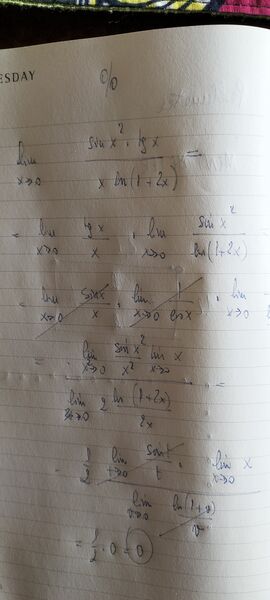 ESDAY
0/0
lim x→0 sin x² · tg x / x ln(1+2x) =
= lim x→0 tg x / x · lim x→0 sin x² / ln(1+2x)
= lim x→0 sin x / x · lim x→0 1 / cos x · lim x→0
= lim x→0 sin x² / x² lim x→0 x / lim x→0 2 ln(1+2x) / 2x =
1/2 lim t→0 sin t / t · lim x→0 x / lim v→0 ln(1+v) / v
= 1/2 · 0 = 0